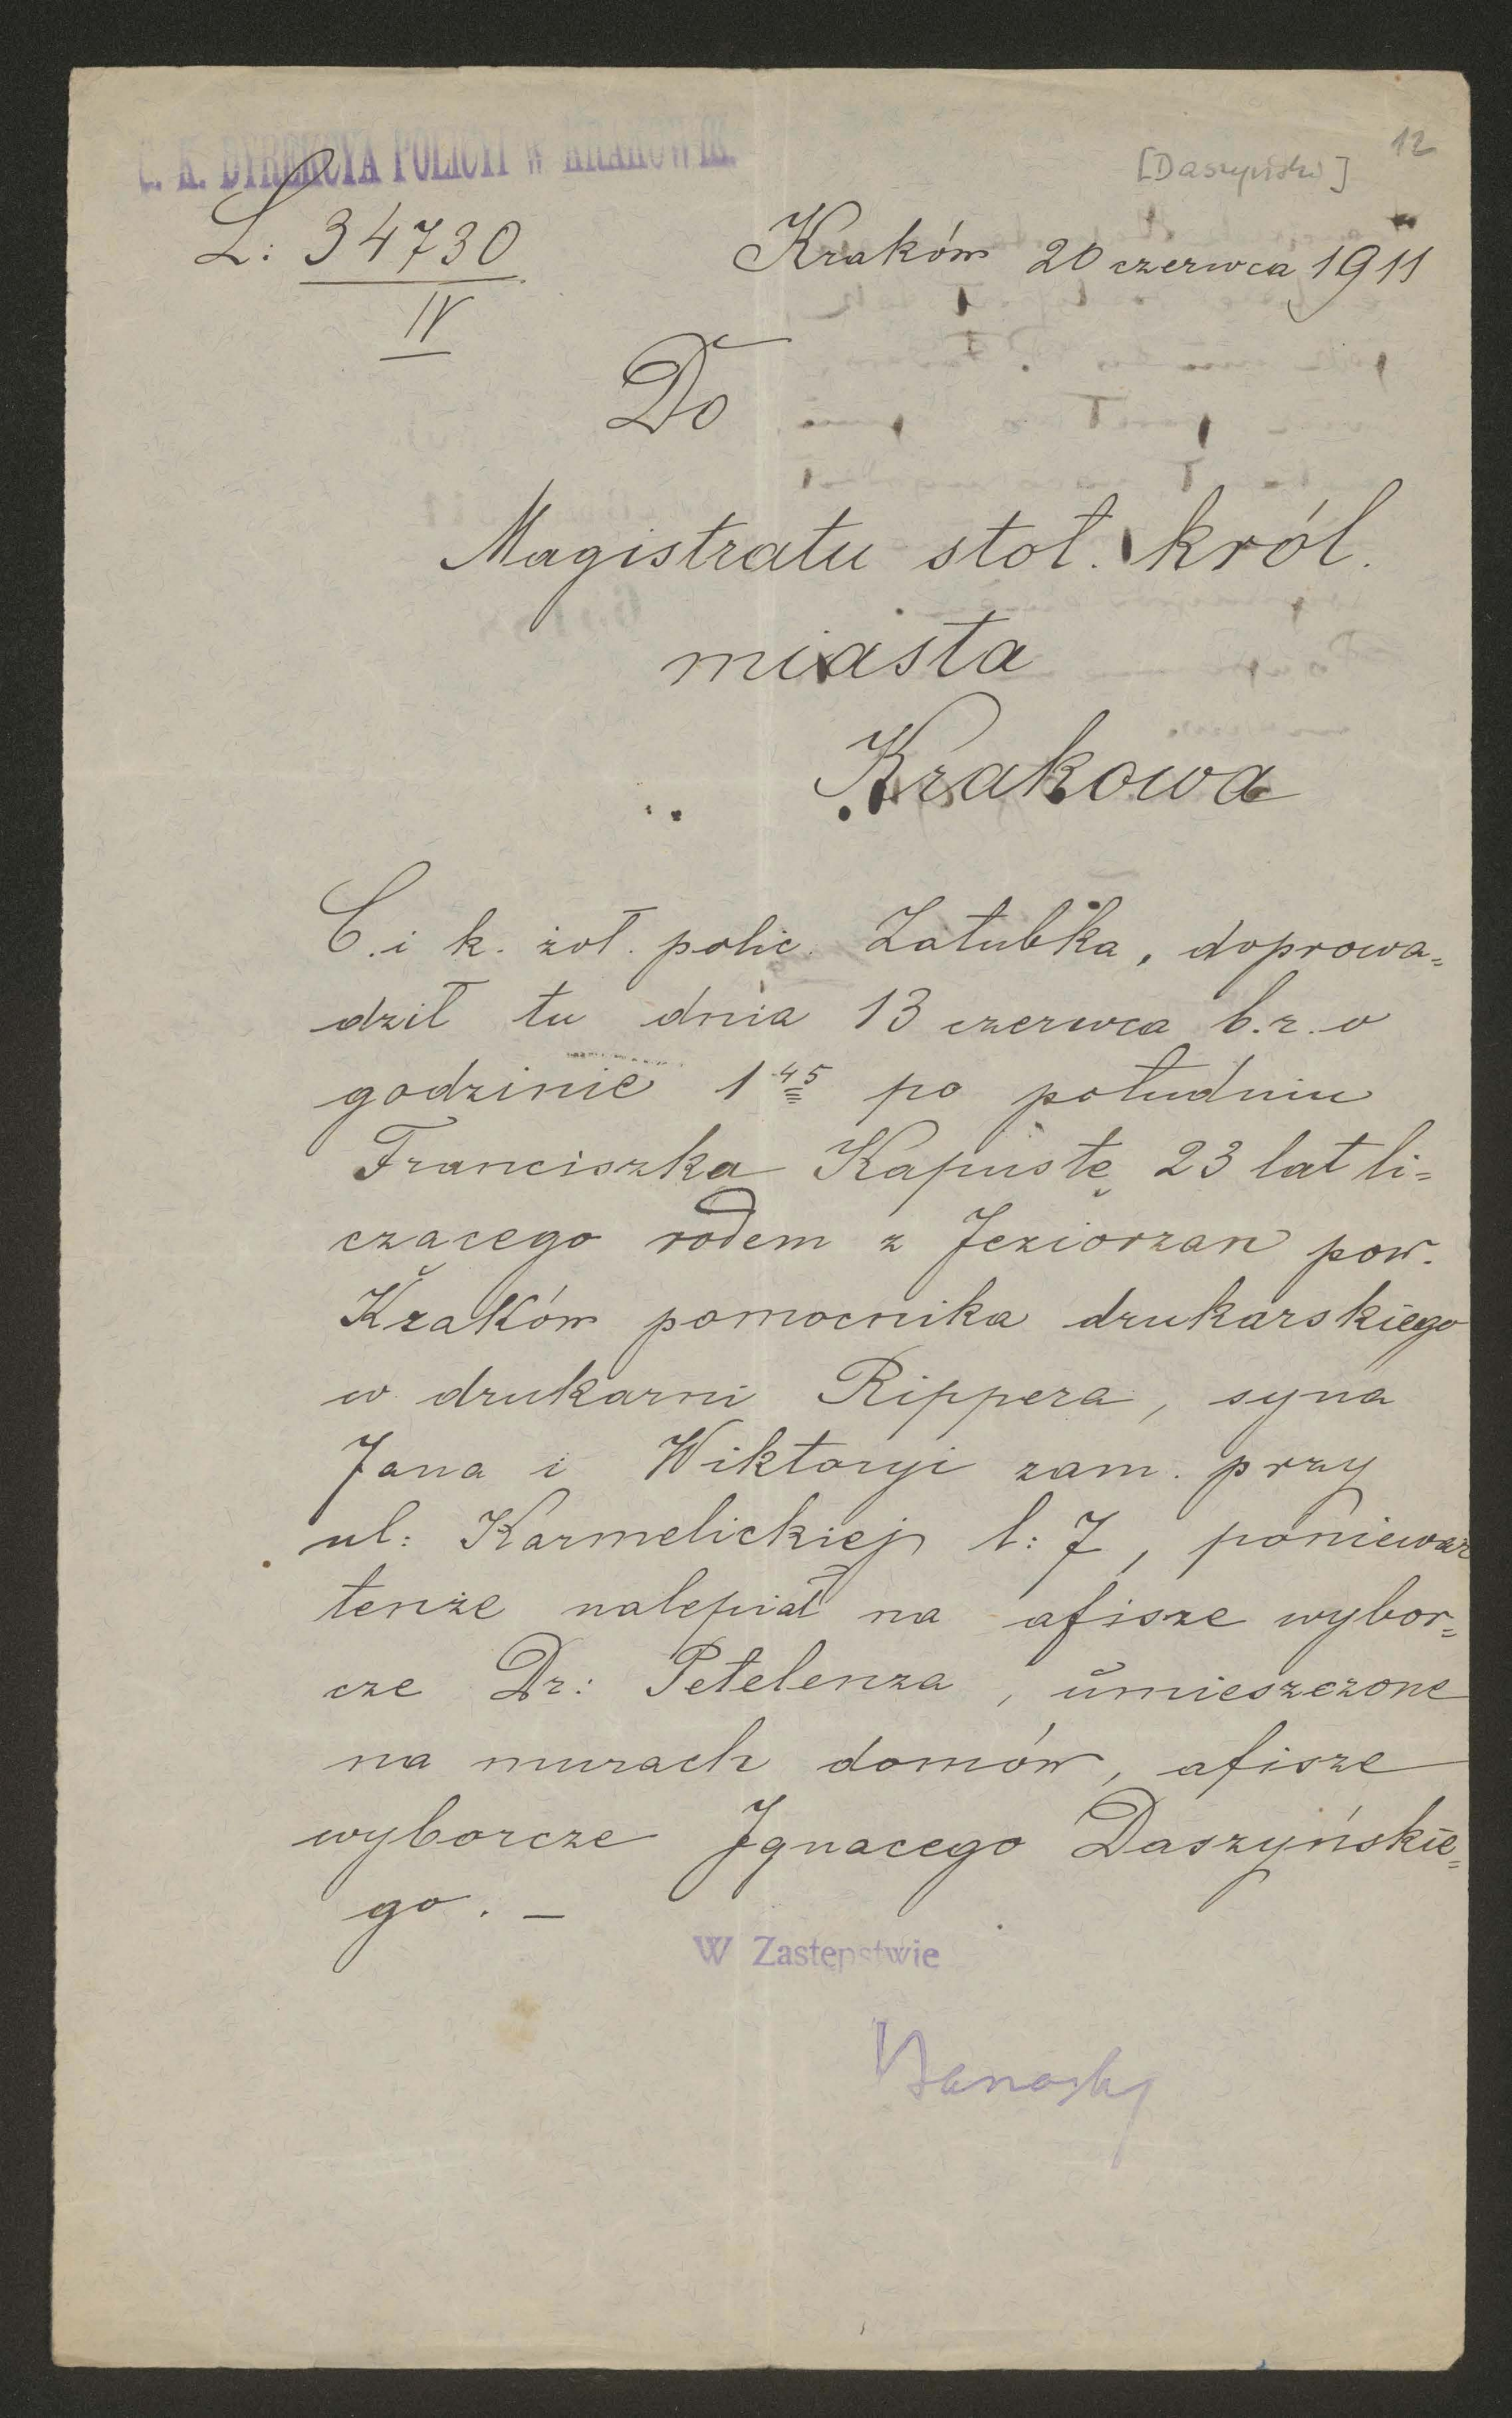 C. K. DYREKCYA POLICYI W KRAKOWIE.
12
[Daszyński]
L: 34730
IV
Kraków 20 czerwca 1911
Do
Magistratu stoł. król.
miasta
Krakowa
C. i k. żoł. polic. Załubka, doprowa=
dził tu dnia 13 czerwca b.r. o
godzinie 1 45 po południu
Franciszka Kapustę 23 lat li=
czącego rodem z Jeziorzan pow.
Kraków pomocnika drukarskiego
w drukarni Rippera, syna
Jana i Wiktoryi zam. przy
ul: Karmelickiej l: 7, ponieważ
tenże nalepiał na afisze wybor=
cze Dr: Petelenza, umieszczone
na murach domów, afisze
wyborcze Ignacego Daszyńskie=
go. —
W Zastępstwie